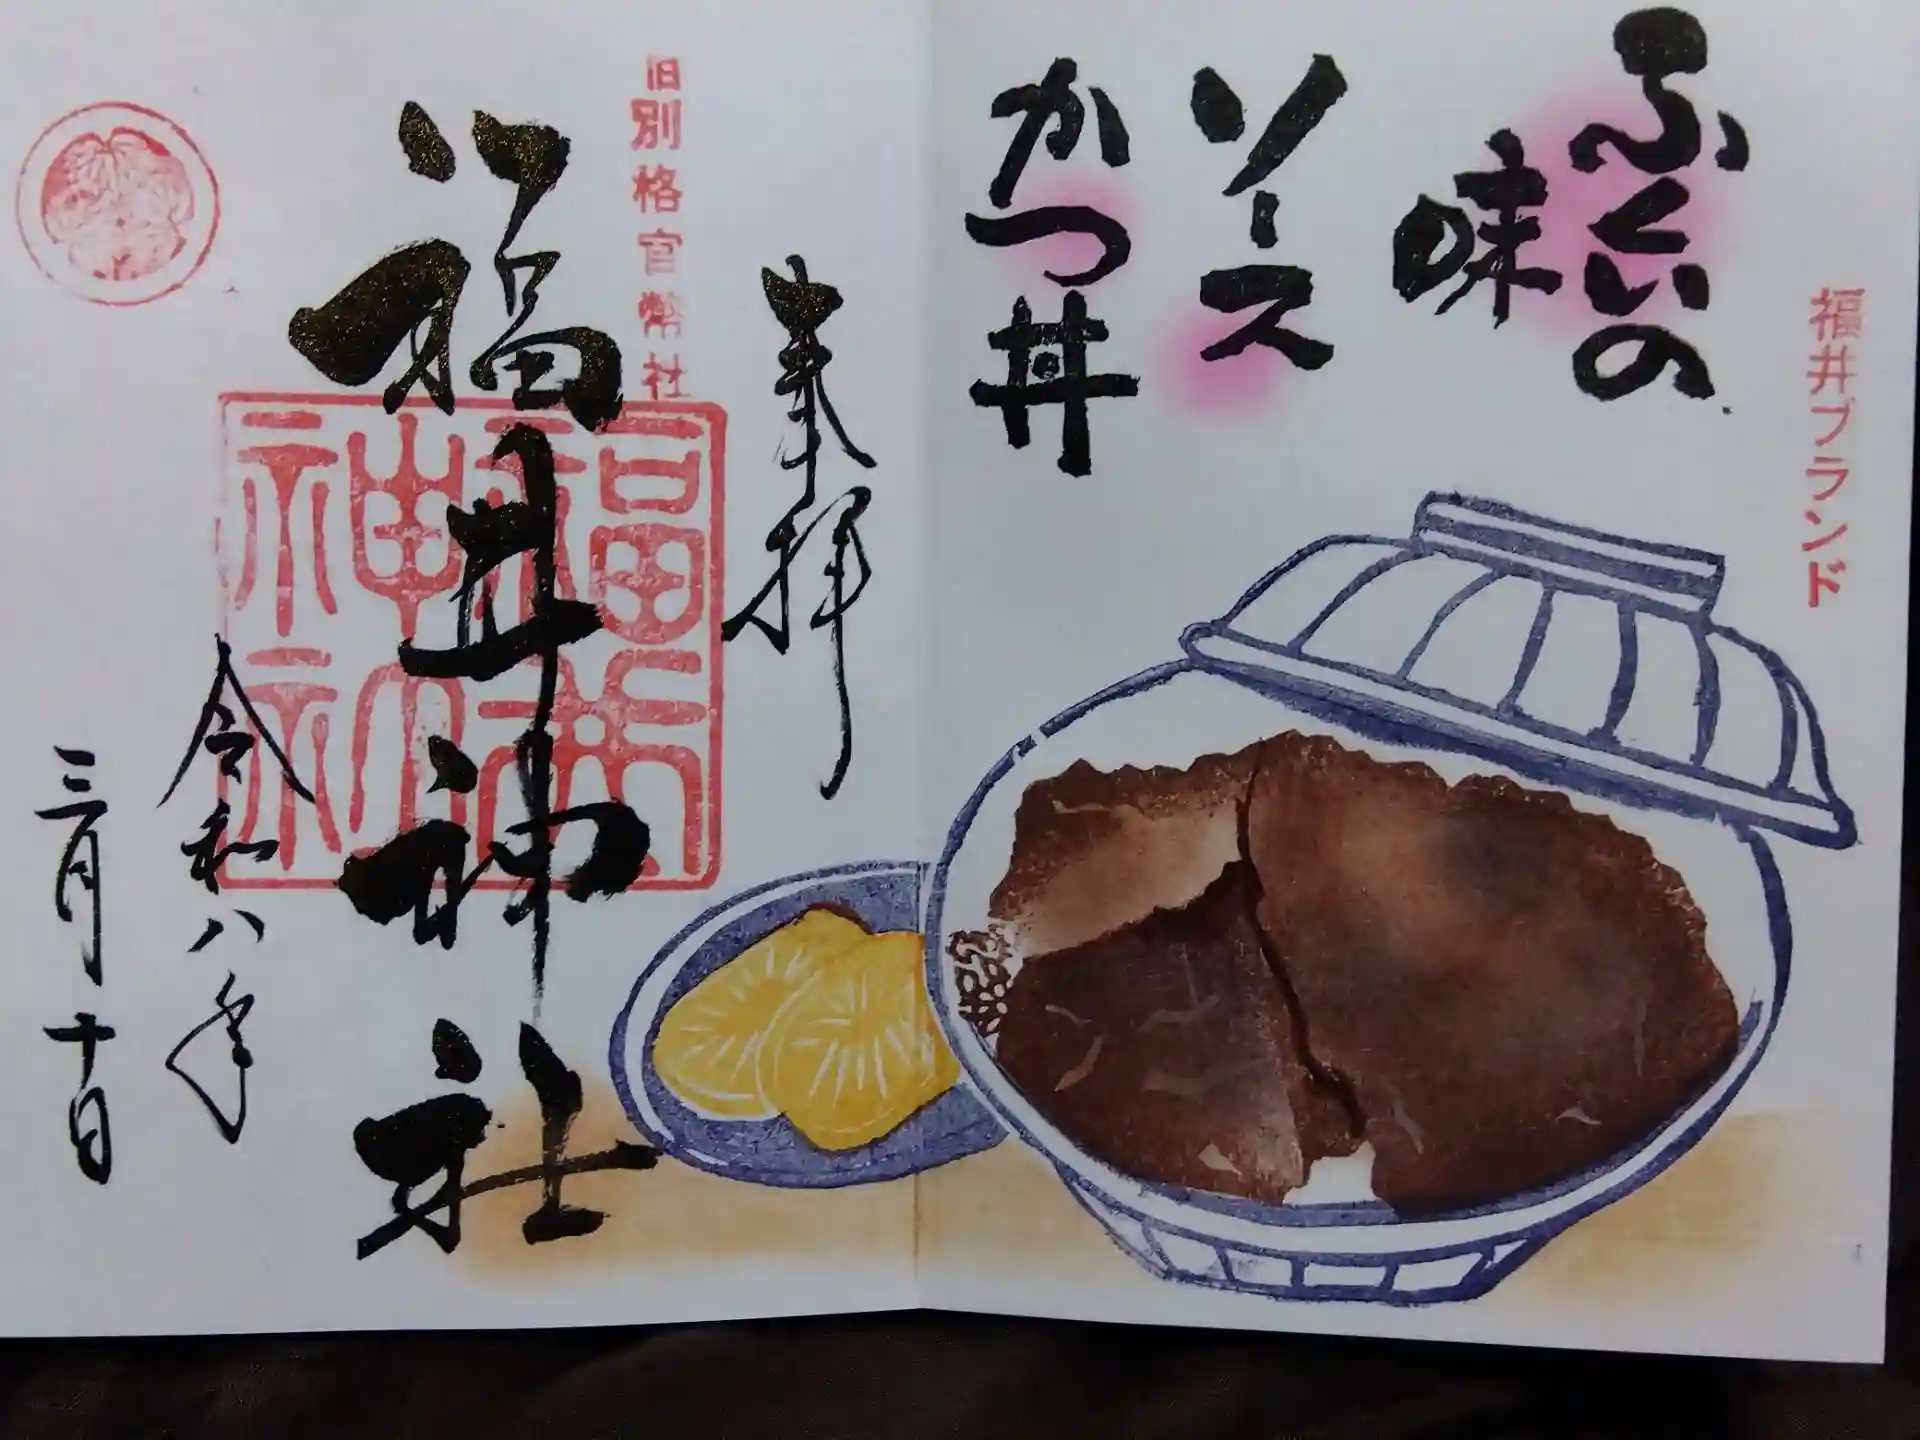 福井ブランド
ふくいの
味
ソース
かつ丼
奉拝
旧別格官幣社
福井神社
令和八年
三月十日